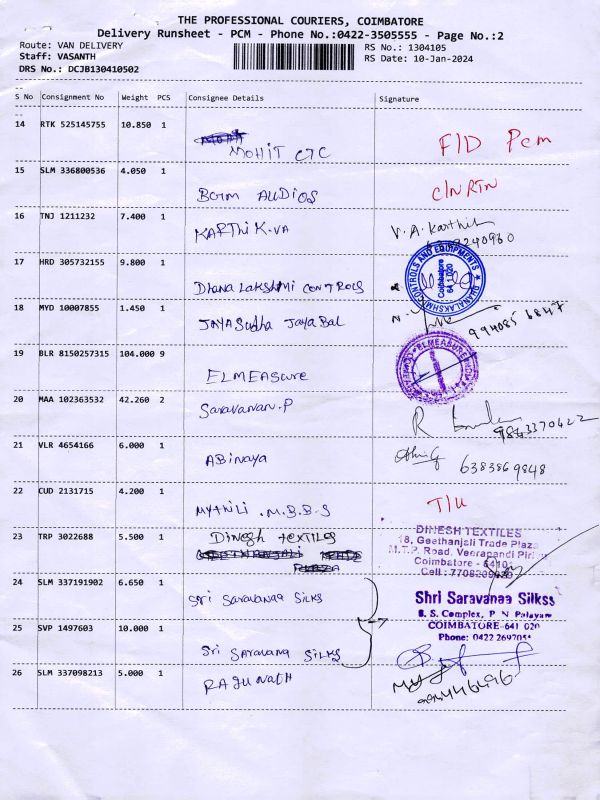 THE PROFESSIONAL COURIERS, COIMBATORE
Delivery Runsheet - PCM - Phone No.:0422-3505555 - Page No.:2
Route: VAN DELIVERY
RS No.: 1304105
Staff: VASANTH
RS Date: 10-Jan-2024
DRS No.: DCJB130410502
S No Consignment No Weight PCS Consignee Details Signature
14 RTK 525145755 10.850 1 MOHIT CTC F/D Pcm
15 SLM 336800536 4.050 1 BOTM AUDIOS C/N RTN
16 TNJ 1211232 7.400 1 KARTHIK.VA V.A.Karthik
17 HRD 305732155 9.800 1 DHANA LAKSHMI CONTROLS
DHANALAKSHMI CONTROLS AND EQUIPMENTS
Coimbatore
641 020
18 MYD 10007855 1.450 1 JAYASudha JAYABAL
994085 6847
19 BLR 8150257315 104.000 9 ELMEASure
ELMEASURE
20 MAA 102363532 42.260 2 Saravanan.P
9843370422
21 VLR 4654166 6.000 1 ABinaya
6383869848
22 CUD 2131715 4.200 1 MYTHILI .M.B.B-S T/U
23 TRP 3022688 5.500 1 Dinesh TEXTILES
DINESH TEXTILES
18, Geethanjali Trade Plaza
M.T.P. Road, Veerapandi
Coimbatore -
Cell :
24 SLM 337191902 6.650 1 Sri Saravanaa SILKS
Shri Saravanaa Silkss
S. S. Complex, P N Palayam
COIMBATORE-641 020
Phone: 0422
25 SVP 1497603 10.000 1 Sri SARAVANA SILKS
26 SLM 337098213 5.000 1 RAGUNATH